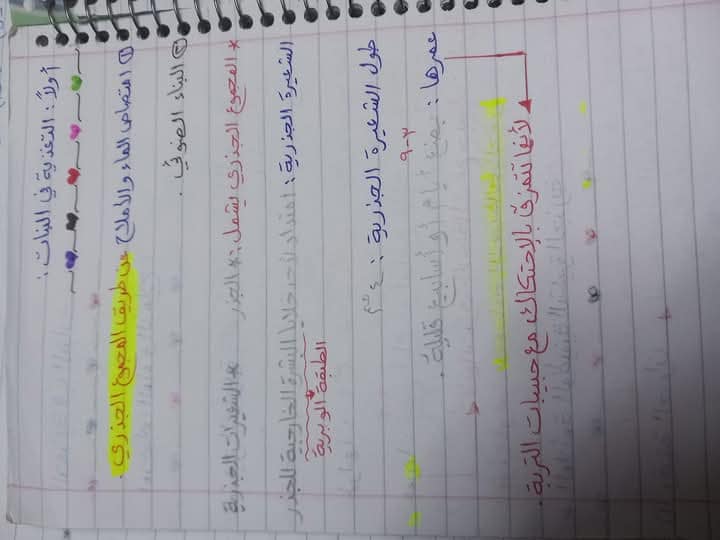 أولاً: التغذية في النبات:
① امتصاص الماء والأملاح عن طريق المجموع الجذري.
② البناء الضوئي.
* المجموع الجذري يشمل: * الجذر * الشعيرات الجذرية
الشعيرة الجذرية: امتداد لأحد خلايا البشرة الخارجية للجذر
الطبقة الوبرية
طول الشعيرة الجذرية: ٤ مم
٣-٩
عمرها: بضع أيام أو أسابيع قليلة.
لأنها تتمزق بالاحتكاك مع حبيبات التربة.